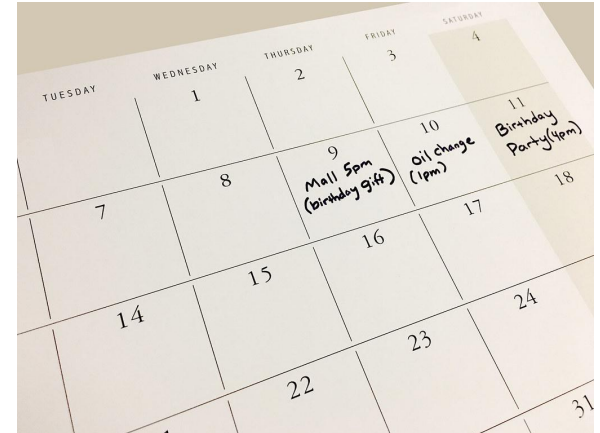 TUESDAY WEDNESDAY THURSDAY FRIDAY SATURDAY
1 2 3 4
7 8 9 10 11
Mall 5pm
(birthday gift)
Oil change
(1pm)
Birthday
Party (4pm)
14 15 16 17 18
22 23 24
31